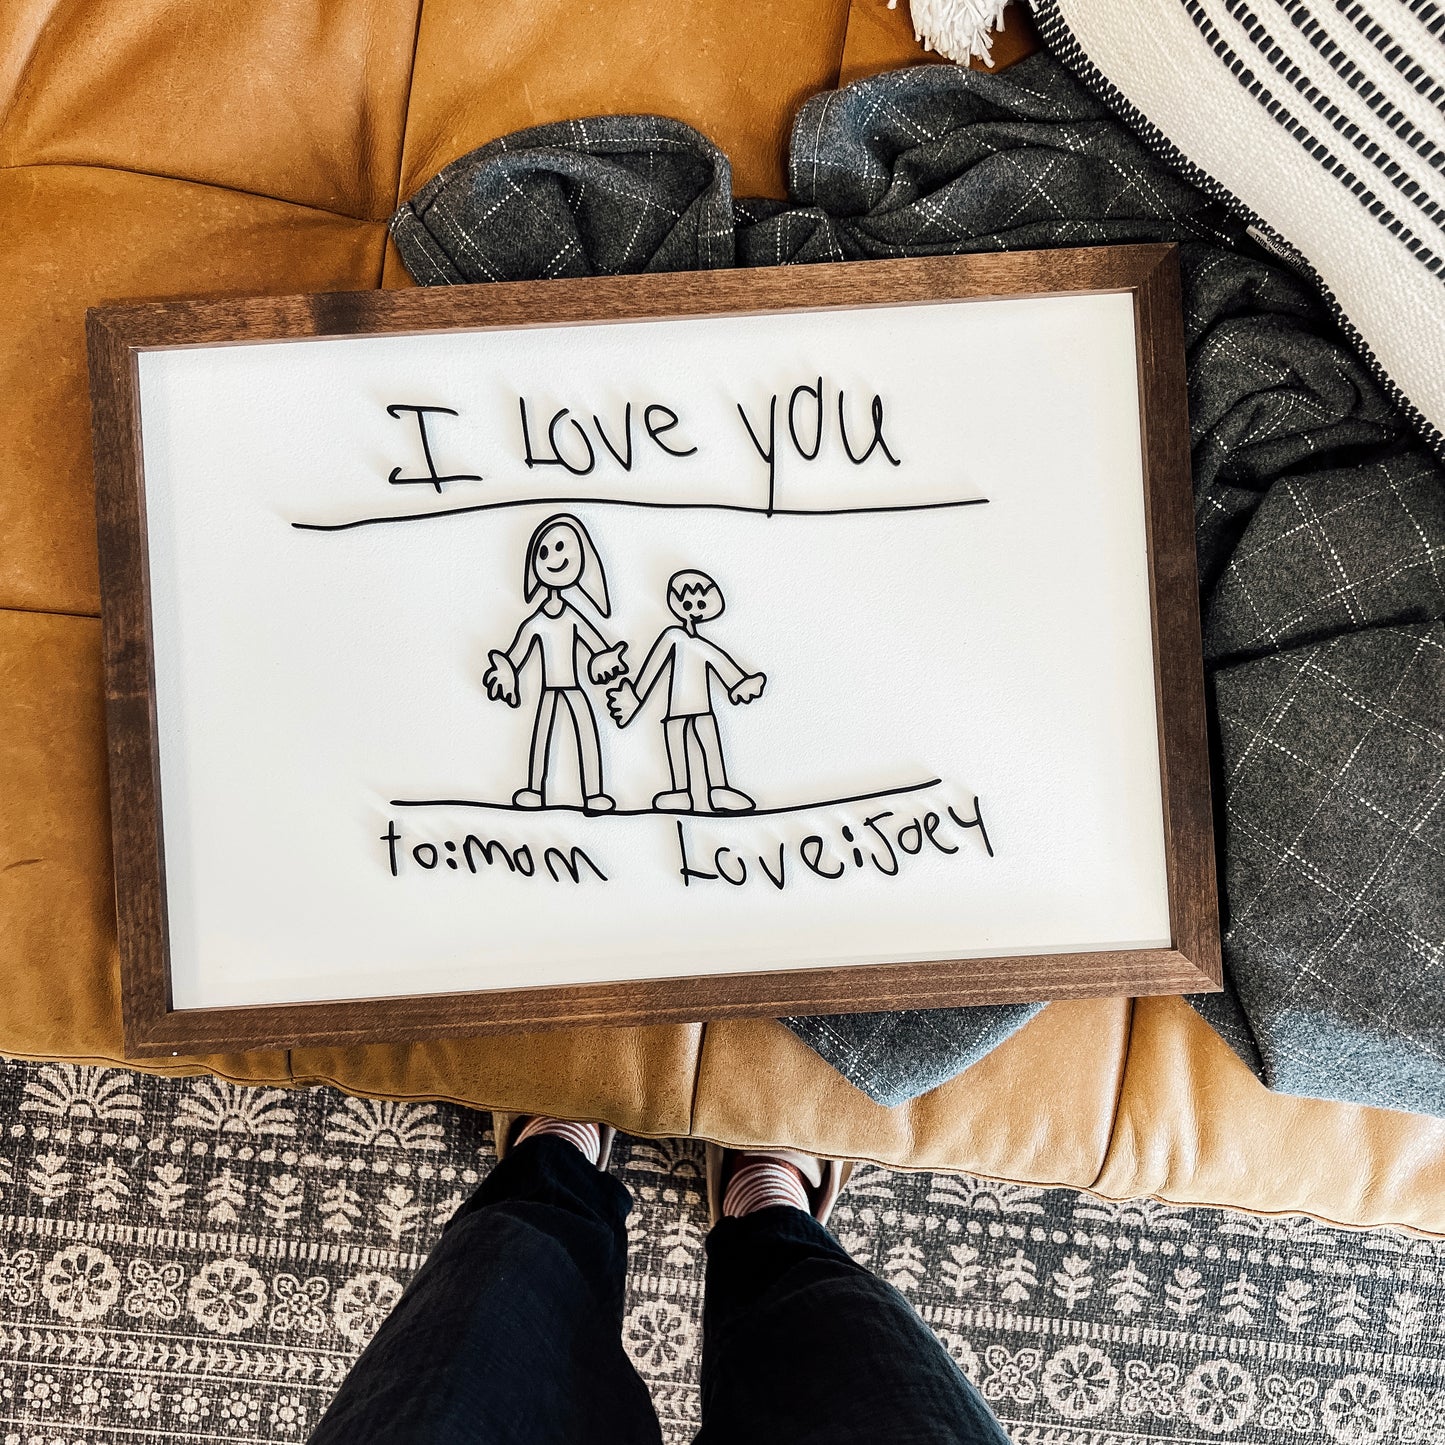 I Love you
to:mom Love:Joey